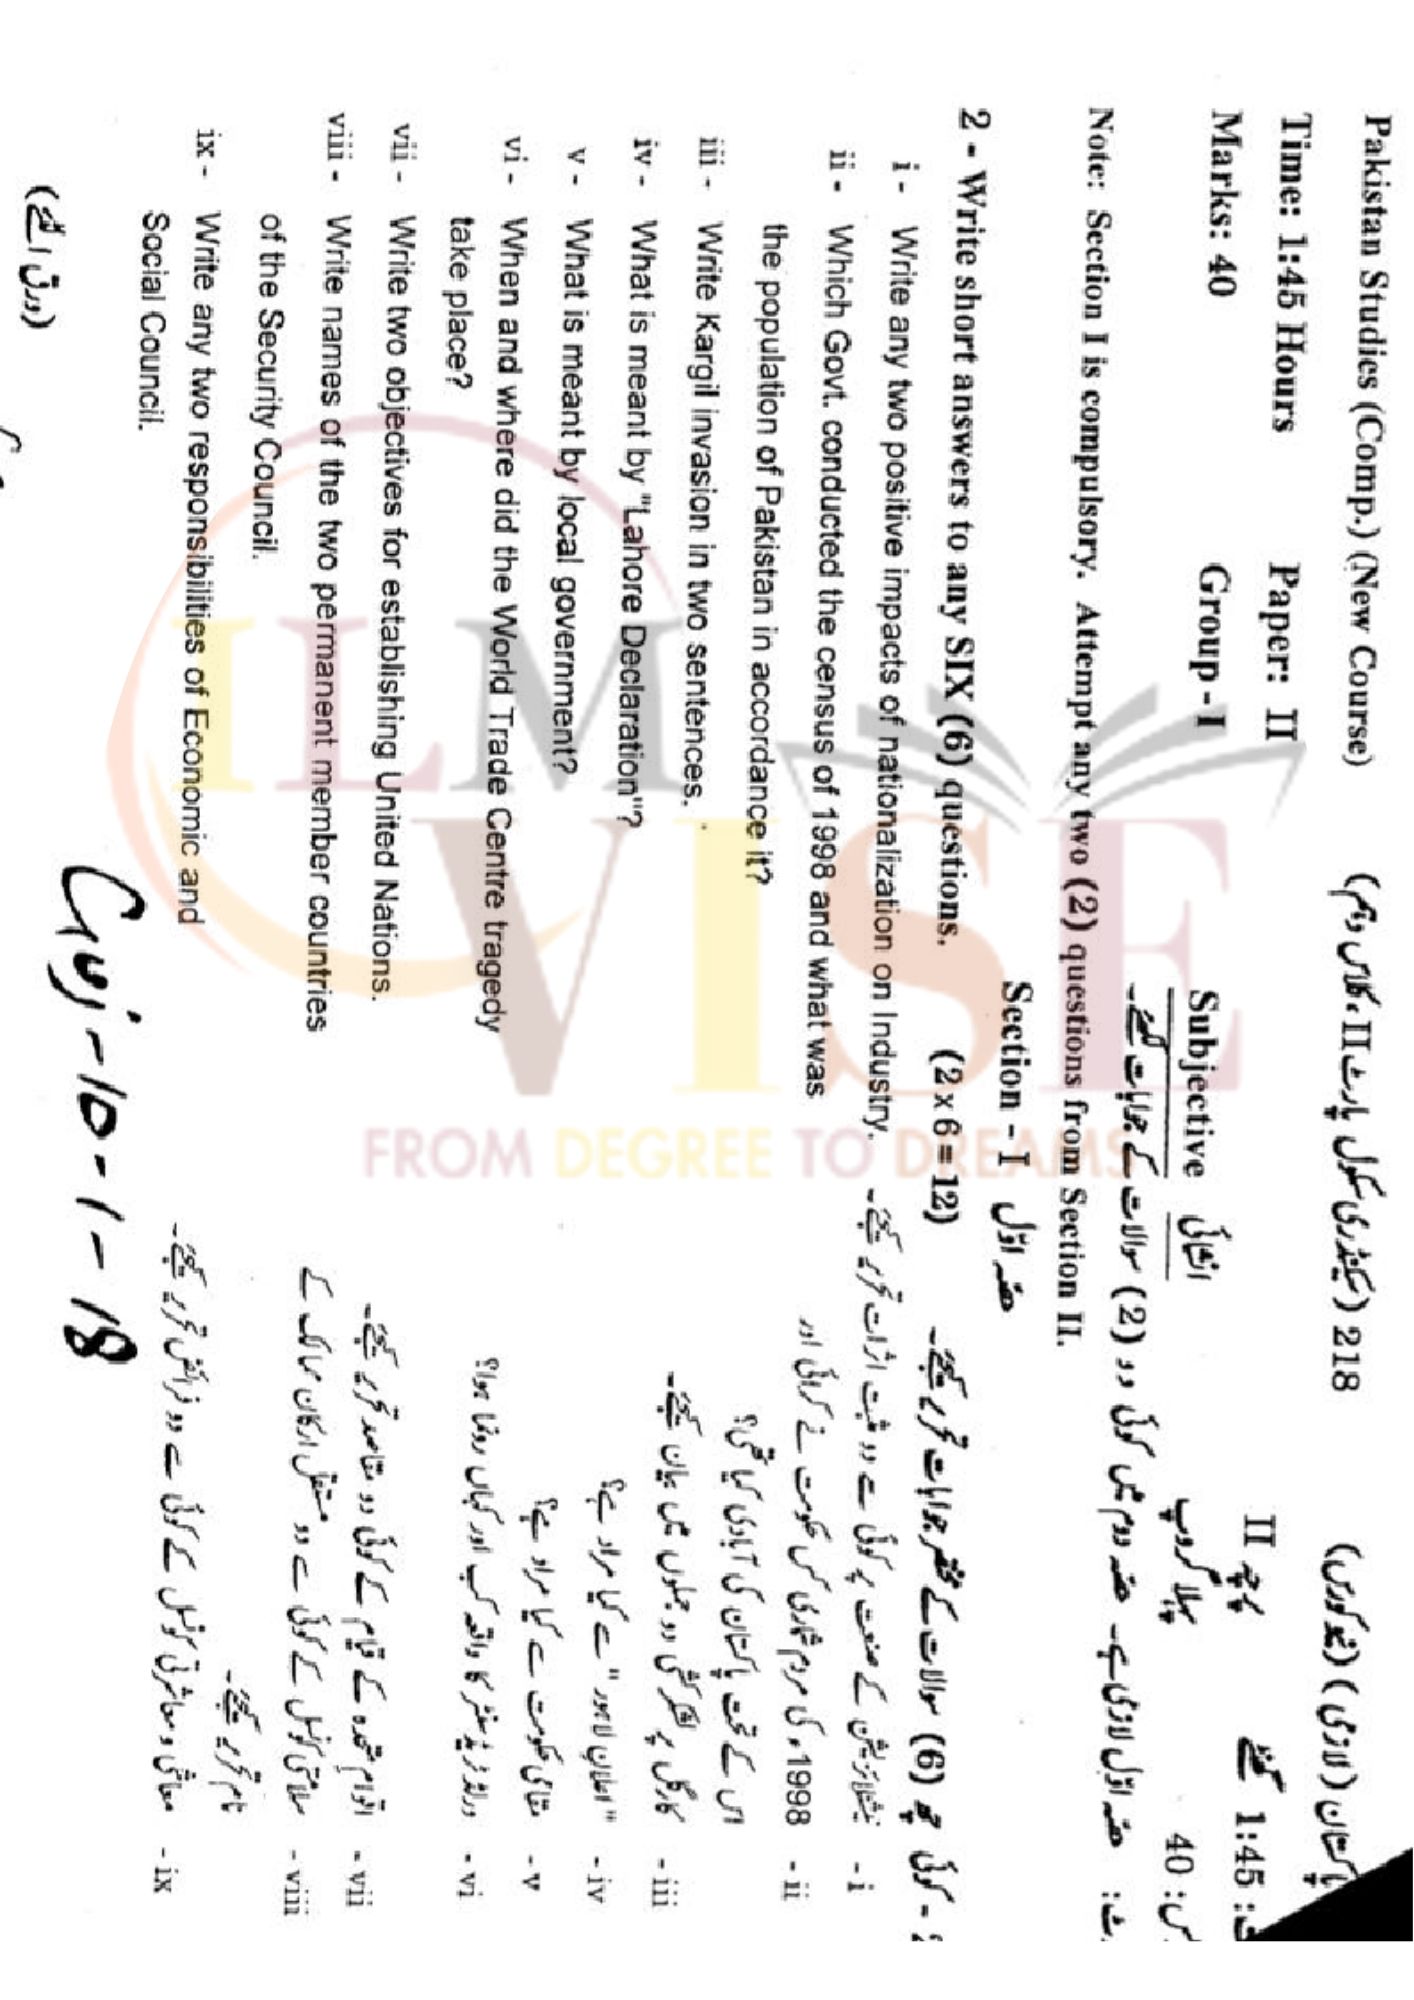 Pakistan Studies (Comp.) (New Course) (سیکنڈری سکول پارٹ II، کلاس دہم) 218 پاکستان (لازمی) (نیو کورس)
Time: 1:45 Hours Paper: II پرچہ II 1:45 گھنٹے
Marks: 40 Group - I Subjective انشائی پہلا گروپ 40
حصہ اوّل لازمی ہے۔ حصہ دوم میں کوئی دو (2) سوالات کے جوابات لکھئے۔
Note: Section I is compulsory. Attempt any two (2) questions from Section II.
Section - I حصہ اوّل
2 - Write short answers to any SIX (6) questions. (2 x 6 = 12) کوئی چھ (6) سوالات کے مختصر جوابات تحریر کیجئے۔
i - Write any two positive impacts of nationalization on Industry. نیشنلائزیشن کے صنعت پر کوئی سے دو مثبت اثرات تحریر کیجئے۔ - i
ii - Which Govt. conducted the census of 1998 and what was 1998ء کی مردم شماری کس حکومت نے کرائی اور - ii
the population of Pakistan in accordance it? اس کے تحت پاکستان کی آبادی کیا تھی؟
iii - Write Kargil invasion in two sentences. کارگل پر لشکر کشی دو جملوں میں بیان کیجئے۔ - iii
iv - What is meant by "Lahore Declaration"? "اعلانِ لاہور" سے کیا مراد ہے؟ - iv
v - What is meant by local government? مقامی حکومت سے کیا مراد ہے؟ - v
vi - When and where did the World Trade Centre tragedy ورلڈ ٹریڈ سنٹر کا واقعہ کب اور کہاں رونما ہوا؟ - vi
take place?
vii - Write two objectives for establishing United Nations. اقوامِ متحدہ کے قیام کے کوئی دو مقاصد تحریر کیجئے۔ - vii
viii - Write names of the two permanent member countries سلامتی کونسل کے کوئی سے دو مستقل ارکان ممالک کے - viii
of the Security Council. نام تحریر کیجئے۔
ix - Write any two responsibilities of Economic and معاشی و معاشرتی کونسل کے کوئی سے دو فرائض تحریر کیجئے۔ - ix
Social Council.
Guj-10-1-18
(ورق الٹئے)
ILM
VISE
FROM DEGREE TO DREAMS